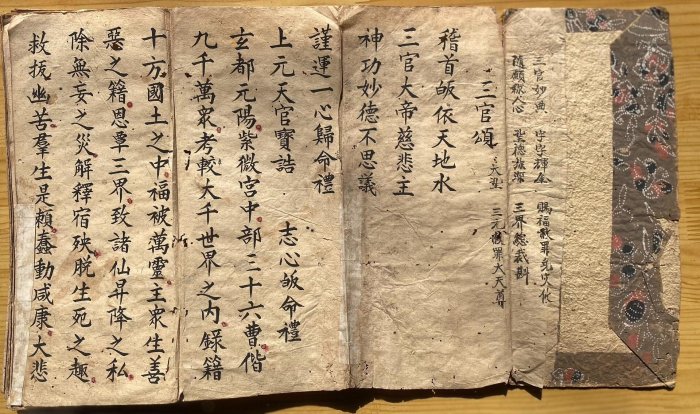 三官妙 字字 金 賜福赦罪
隨願 人心 聖德 深 三界總裁
三官頌 三元赦罪大天尊
稽首皈依天地水
三官大帝慈悲主
神功妙德不思議
謹運一心歸命禮
上元天官寶誥 志心皈命禮
玄都元陽紫微宮中部三十六曹偕
九千萬衆考較大千世界之內錄籍
十方國土之中福被萬靈主衆生善
惡之籍恩覃三界致諸仙昇降之私
除無妄之災解釋宿殃脫生死之趣
救拔幽苦羣生是賴蠢動咸康大悲